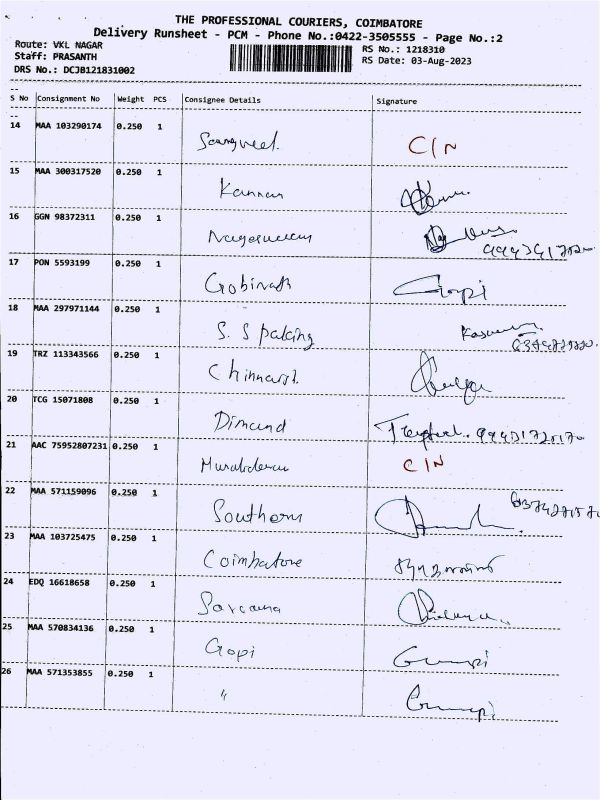 THE PROFESSIONAL COURIERS, COIMBATORE
Delivery Runsheet - PCM - Phone No.:0422-3505555 - Page No.:2
Route: VKL NAGAR
RS No.: 1218310
Staff: PRASANTH
RS Date: 03-Aug-2023
DRS No.: DCJB121831002
S No Consignment No Weight PCS Consignee Details Signature
14 MAA 103290174 0.250 1 C/N
15 MAA 300317520 0.250 1 Kannan
16 GGN 98372311 0.250 1
17 PON 5593199 0.250 1 Gobinath Gopi
18 MAA 297971144 0.250 1 S. S packing
19 TRZ 113343566 0.250 1
20 TCG 15071808 0.250 1 Dimand
21 AAC 75952807231 0.250 1 C/N
22 MAA 571159096 0.250 1 Southern
23 MAA 103725475 0.250 1 Coimbatore
24 EDQ 16618658 0.250 1
25 MAA 570834136 0.250 1 Gopi
26 MAA 571353855 0.250 1 "